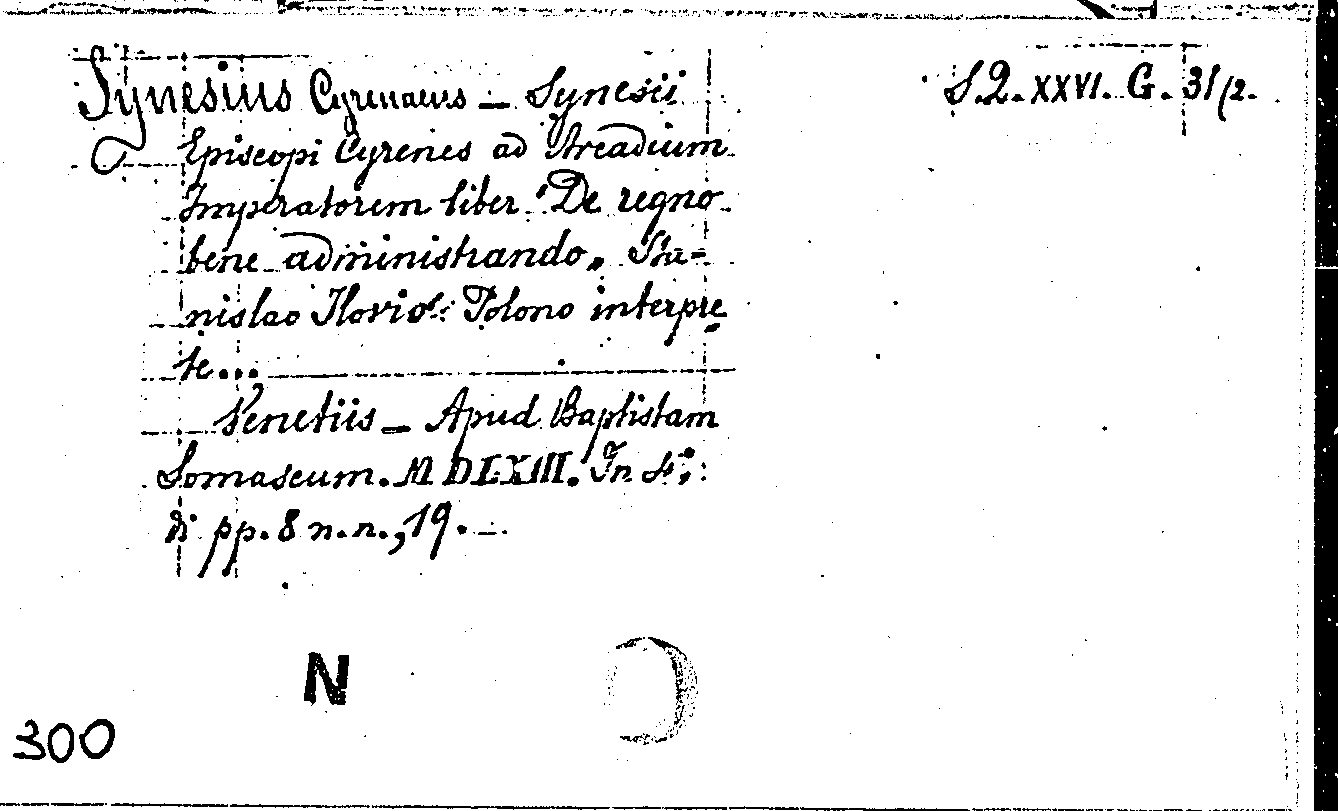 Synesius Cyrenaeus – Synesii
S.Q. XXVI. G. 31/2.
Episcopi Cyrenes ad Arcadium
Imperatorem liber "De regno
bene administrando„ Sta=
nislao Ilovio: Polono interpre
te...
Venetiis – Apud Baptistam
Somascum. MDLXIII. In 4°:
di pp. 8 n.n., 19. –
N
300